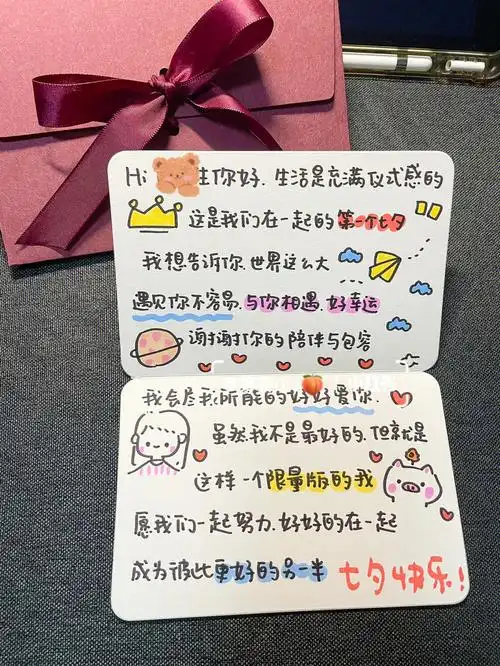 Hi 生你好.生活是充满仪式感的
这是我们在一起的第一个七夕
我想告诉你.世界这么大
遇见你不容易.与你相遇.好幸运
谢谢你的陪伴与包容
我会尽我所能的好好爱你.
虽然我不是最好的.但就是
这样一个限量版的我
愿我们一起努力.好好的在一起
成为彼此更好的另一半
七夕快乐!